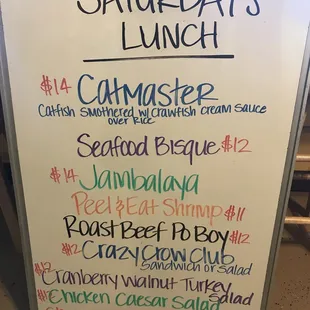 SATURDAY'S
LUNCH
$14 CATMASTER
Catfish smothered w/ crawfish cream sauce
over Rice
Seafood Bisque $12
$14 Jambalaya
Peel & Eat Shrimp $11
Roast Beef Po Boy $12
$12 Crazy Crow Club
Sandwich or Salad
$12 Cranberry Walnut Turkey
Salad
Chicken Caesar Salad